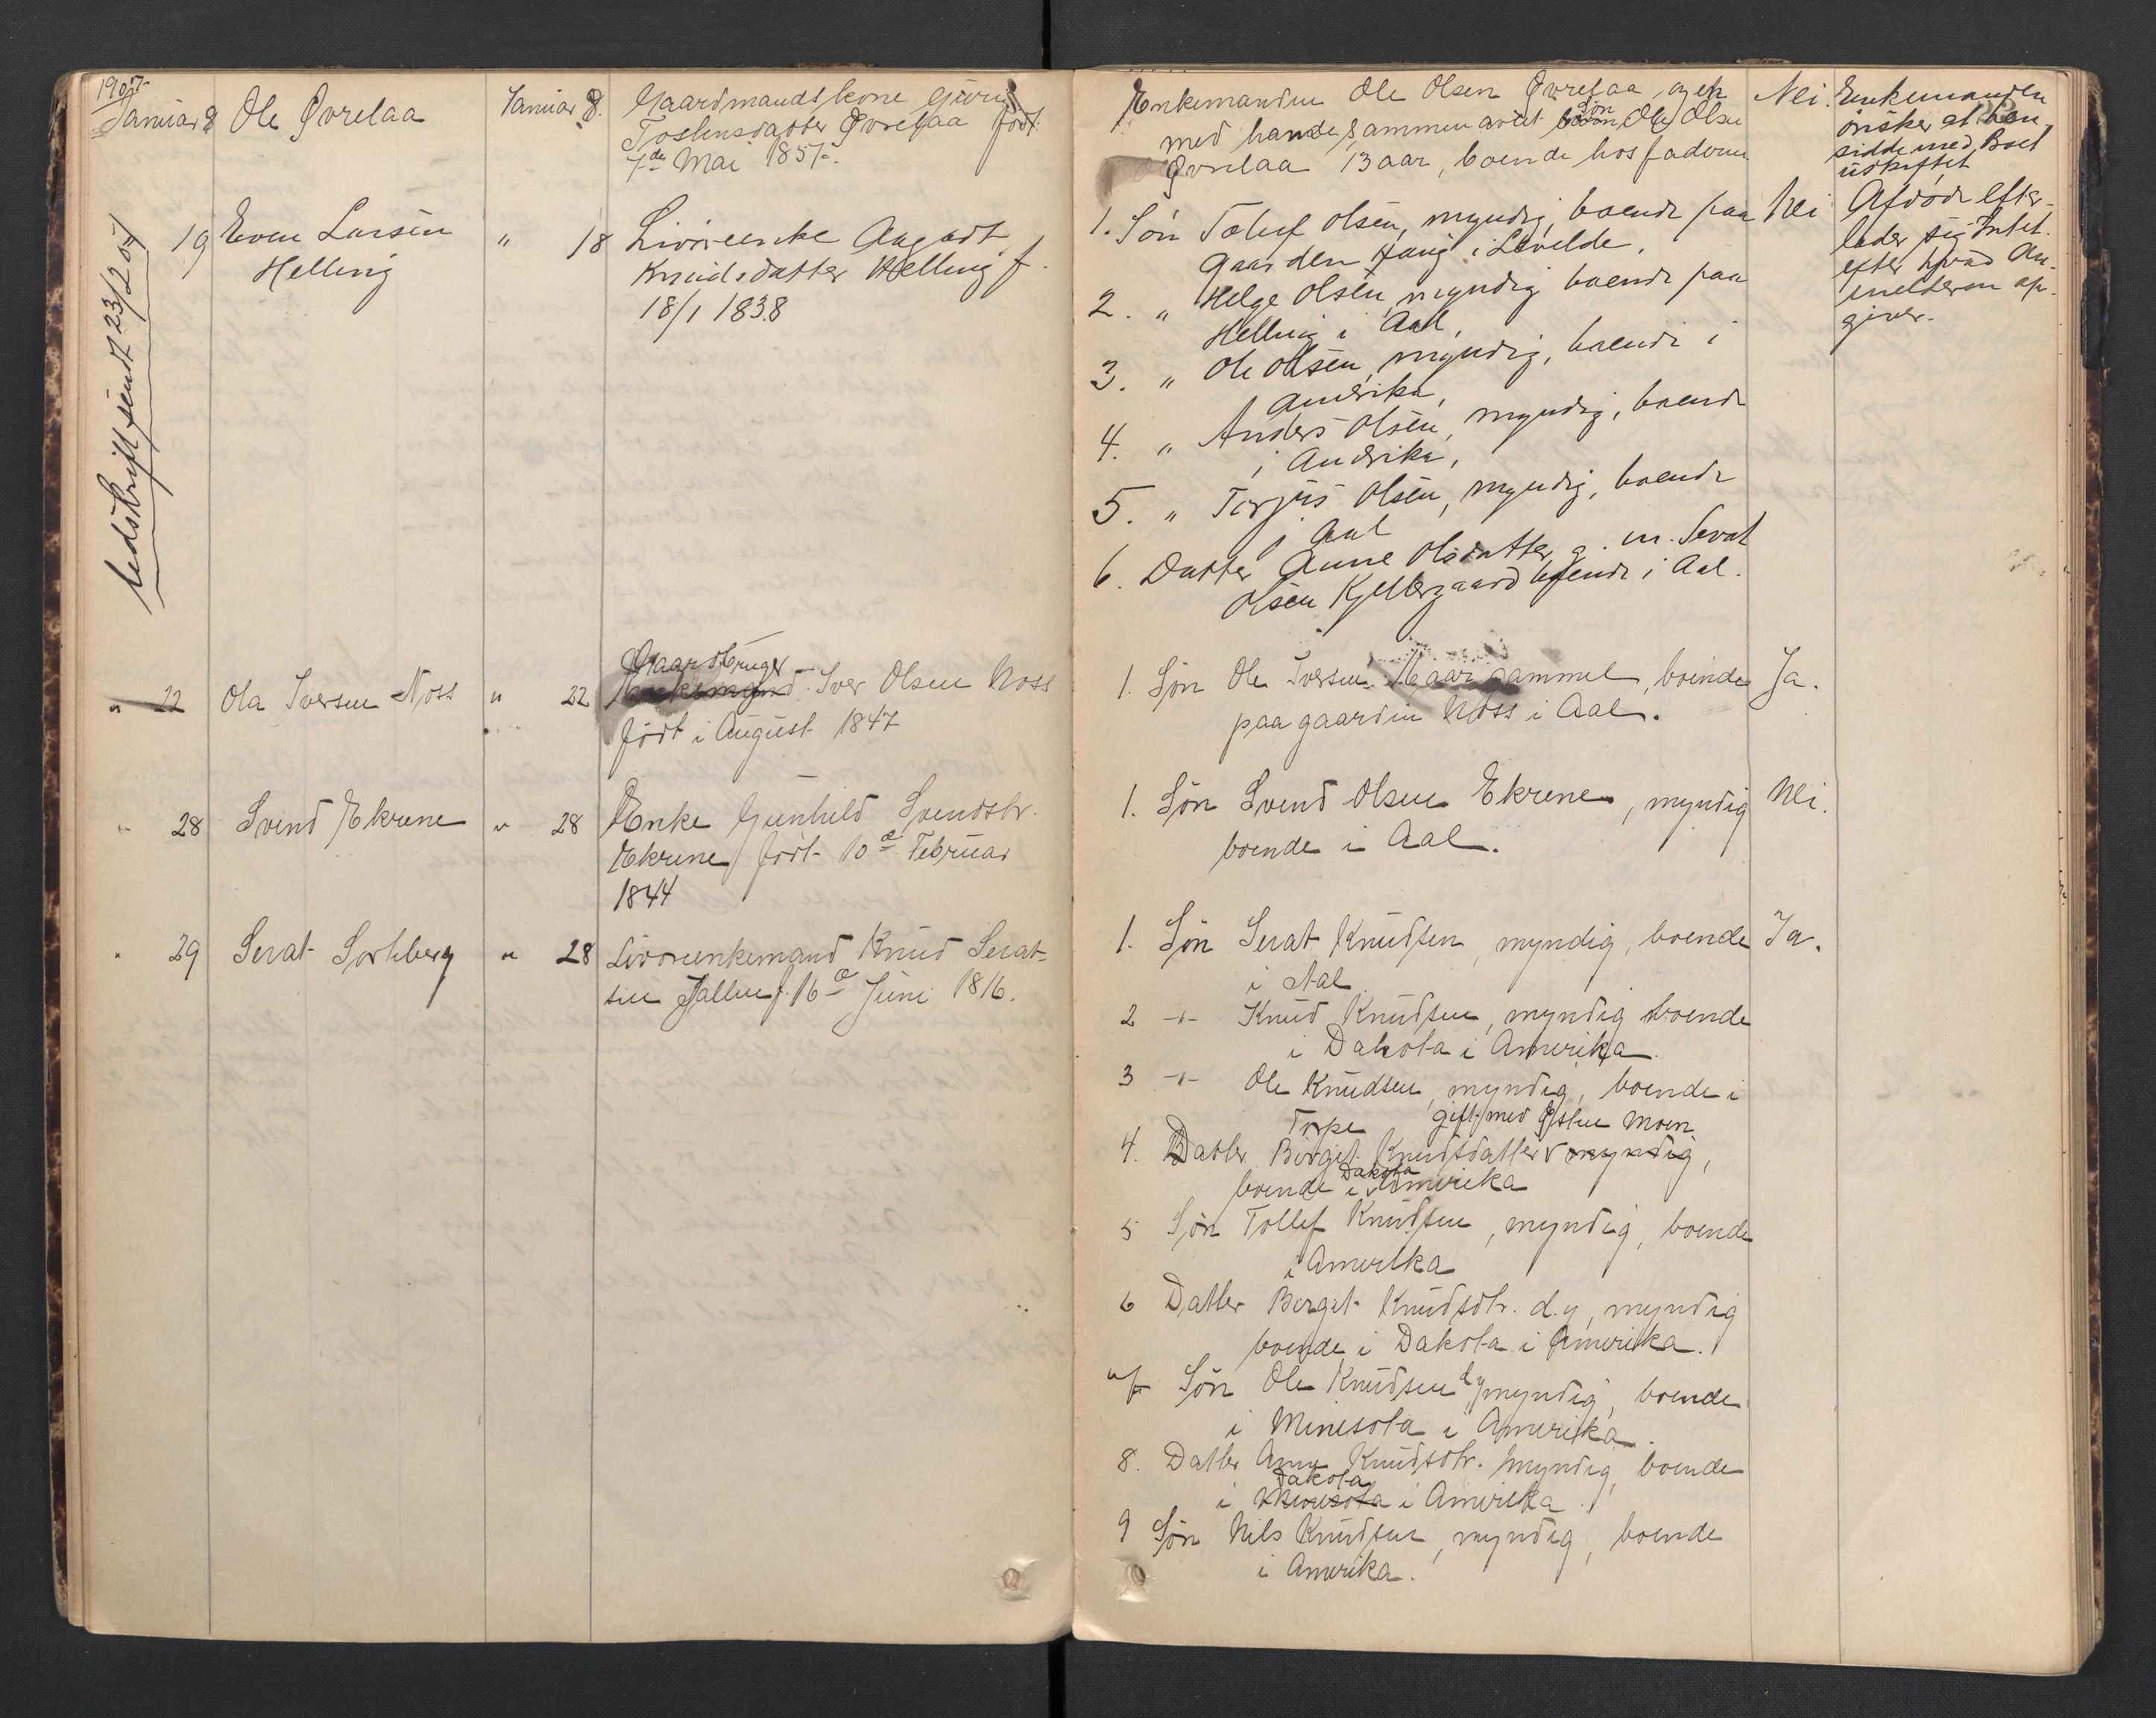 1907
Januar 8 Ole Øvrelaa Januar 8. Gaardmandskone Guri
Tostensdatter Øvrelaa født
7de Mai 1857.
19 Even Larsen " 18 Livøreenke Aagodt
Helling Knudsdatter Helling f.
18/1 1838
sendt 23/2 07
" 22 Ola Iversen Noss " 22 Gaardbruger
Enkemand Iver Olsen Noss
født i August 1847
" 28 Svend Ekrene " 28 Enke Gunhild Svendsdtr.
Ekrene født 10de Februar
1844
" 29 Serat Sorhberg " 28 Livørenkemand Knud Serat-
sen Jallen f. 16de Juni 1816.
Enkemanden Ole Olsen Øvrelaa og en Nei. Enkemanden
med hande sammenavlet Søn Ole Olsen ønsker at hen-
Øvrelaa 13 aar, boende hos faderen sidde med Boet
uskiftet
1. Søn Tolluf Olsen, myndig, boende paa Nei Afdøde efter-
gaarden Haug i Levelde. lader sig Intet.
2. " Helge Olsen, myndig boende paa efter hvad An-
Helling i Aal, melderen op-
3. " Ole Olsen, myndig, boende i giver.
Amerika,
4. " Anders Olsen, myndig, boende
i Amerika,
5. " Torjus Olsen, myndig, boende
i Aal
6. Datter Anne Olsdatter, g. m. Sevat
Olsen Kjellergaard boende i Aal.
1. Søn Ole Iversen Aar gammel, boende Ja.
paa gaarden Noss i Aal.
1. Søn Svend Olsen Ekrene, myndig Nei.
boende i Aal.
1. Søn Serat Knudsen, myndig, boende Ja.
i Aal
2 -"- Knud Knudsen, myndig boende
i Dakota i Amerika.
3 -"- Ole Knudsen, myndig, boende i
Torpe gift med Østen Moen
4. Datter Birgit Knudsdatter myndig,
boende i Dakota Amerika
5 Søn Tollef Knudsen, myndig, boende
i Amerika
6 Datter Birgit Knudsdtr. d.y, myndig
boende i Dakota i Amerika.
7 Søn Ole Knudsen d y myndig, boende
i Minesota i Amerika.
8. Datter Anne Knudsdtr. myndig, boende
Dakota
i Minesota i Amerika.
9 Søn Nils Knudsen, myndig, boende
i Amerika.